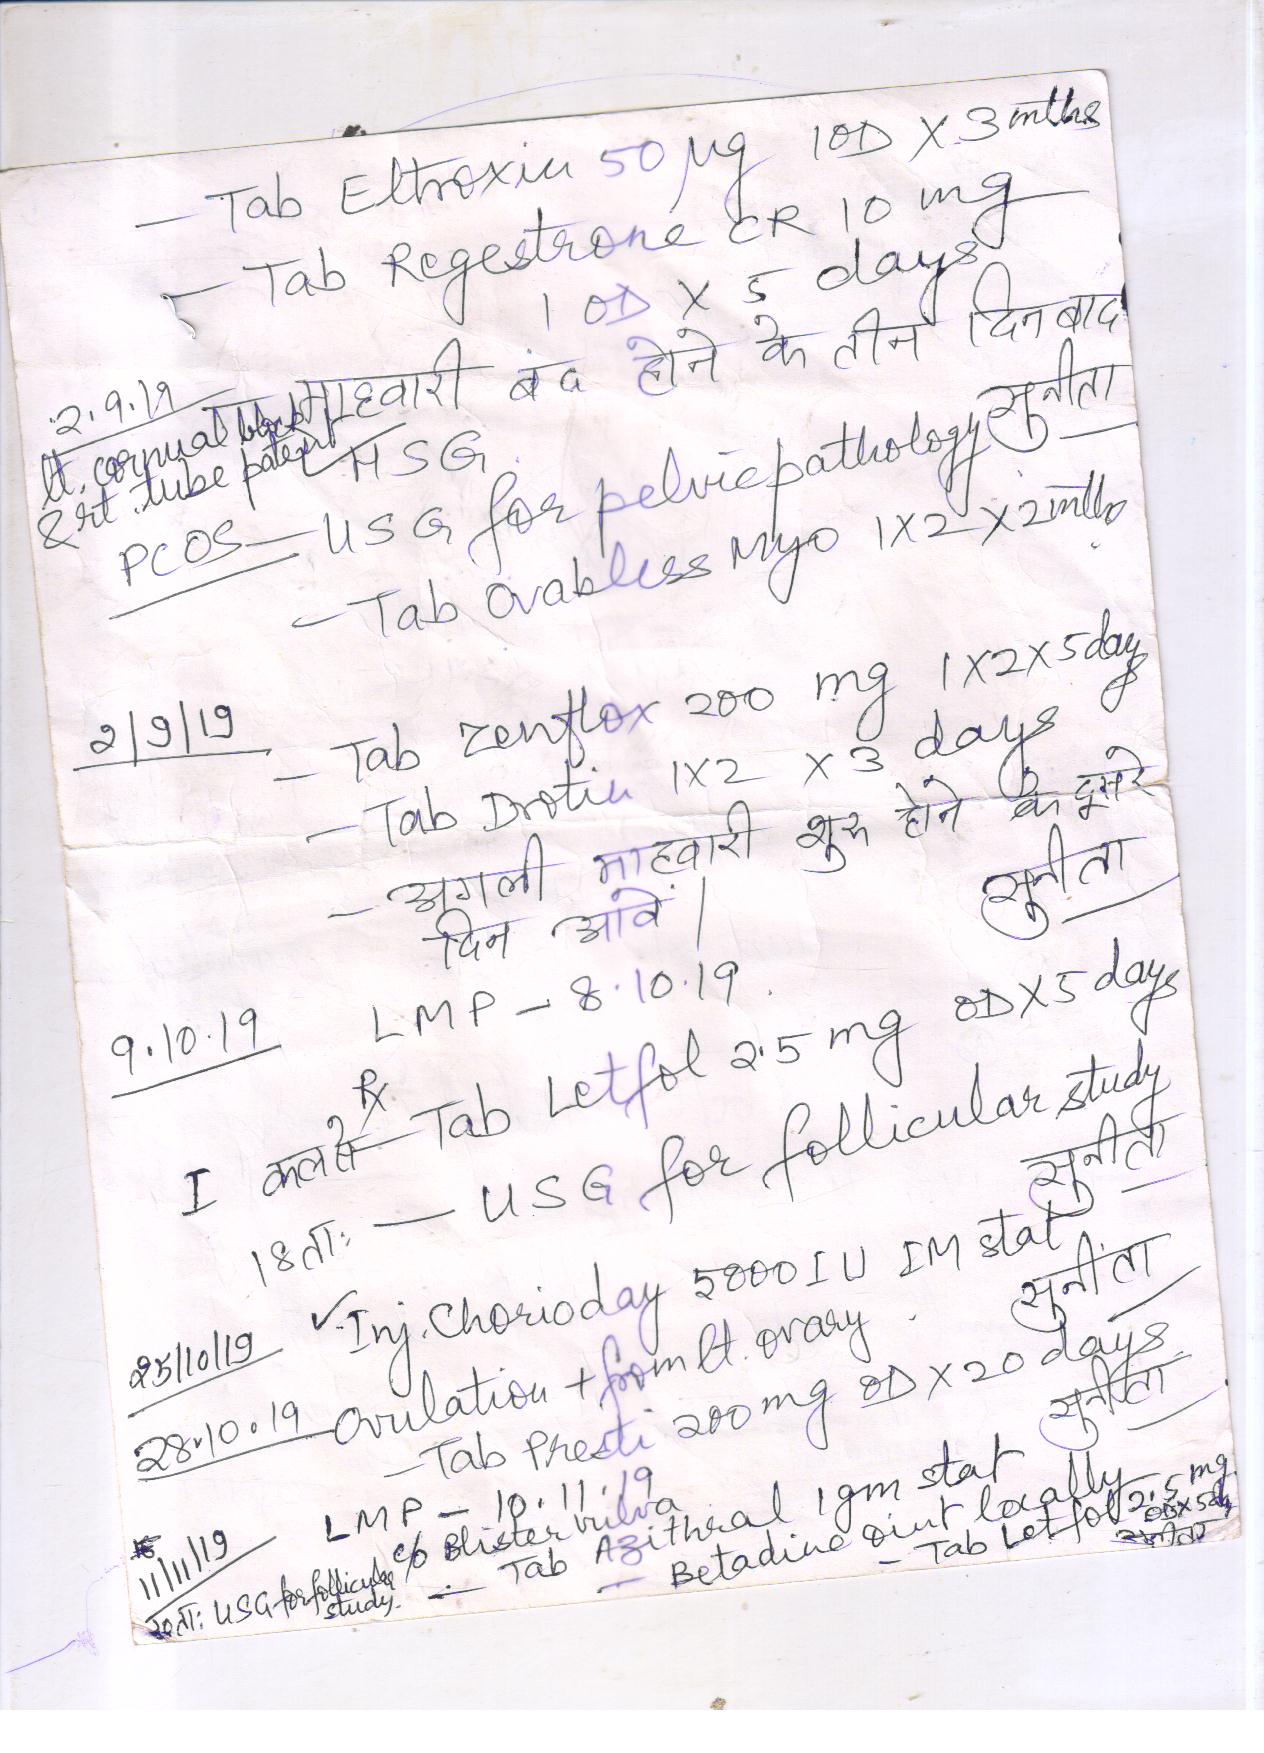 – Tab Eltroxin 50 µg 1OD X 3 mths
– Tab Regestrone CR 10 mg
1 OD X 5 days
2.9.19 माहवारी बंद होने के तीन दिन बाद
lt. cornual block HSG. सुनीता
& rt. tube patent
PCOS – USG for pelvic pathology
– Tab Ovabless Myo 1X2 X 2 mths
2/9/19 – Tab Zenflox 200 mg 1X2X5 days
– Tab Drotin 1X2 X 3 days
– अगली माहवारी शुरू होने के दूसरे
दिन आवें। सुनीता
9.10.19 LMP – 8.10.19.
Rx
I कल से – Tab Letfol 2.5 mg OD X 5 days
18 ता: – USG for follicular study
सुनीता
25/10/19 ✓ Inj. Chorioday 5000 IU IM stat
सुनीता
28.10.19 Ovulation + from lt. ovary.
– Tab Presti 200 mg OD X 20 days.
सुनीता
11/11/19 LMP – 10.11.19
c/o Blister vulva
– Tab Azithral 1 gm stat
– Betadine oint locally
– Tab Letfol 2.5 mg OD X 5 days
सुनीता
20 ता: USG for follicular study.